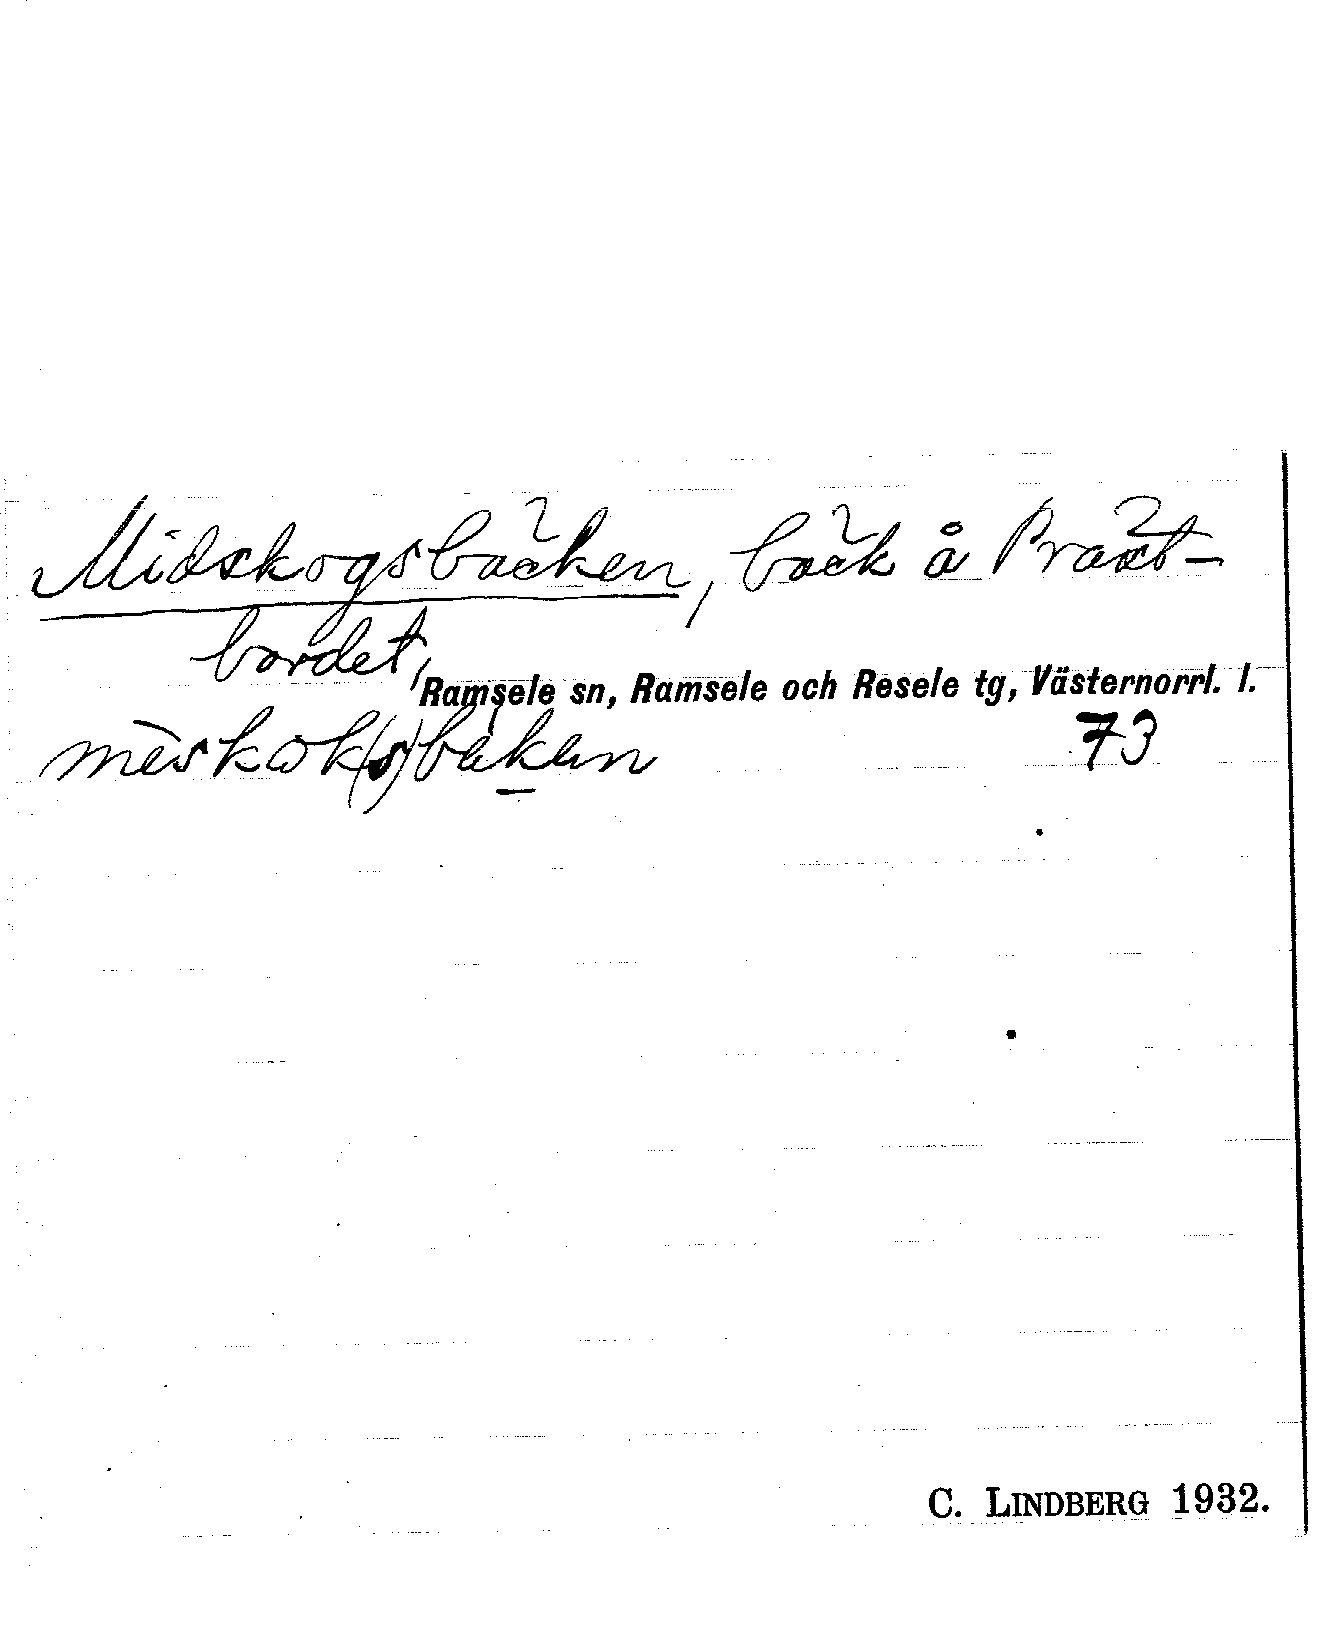 Midskogsbäcken, bäck å Präst-
bordet,
Ramsele sn, Ramsele och Resele tg, Västernorrl. l.
mèskok(s)bäken 73
C. LINDBERG 1932.